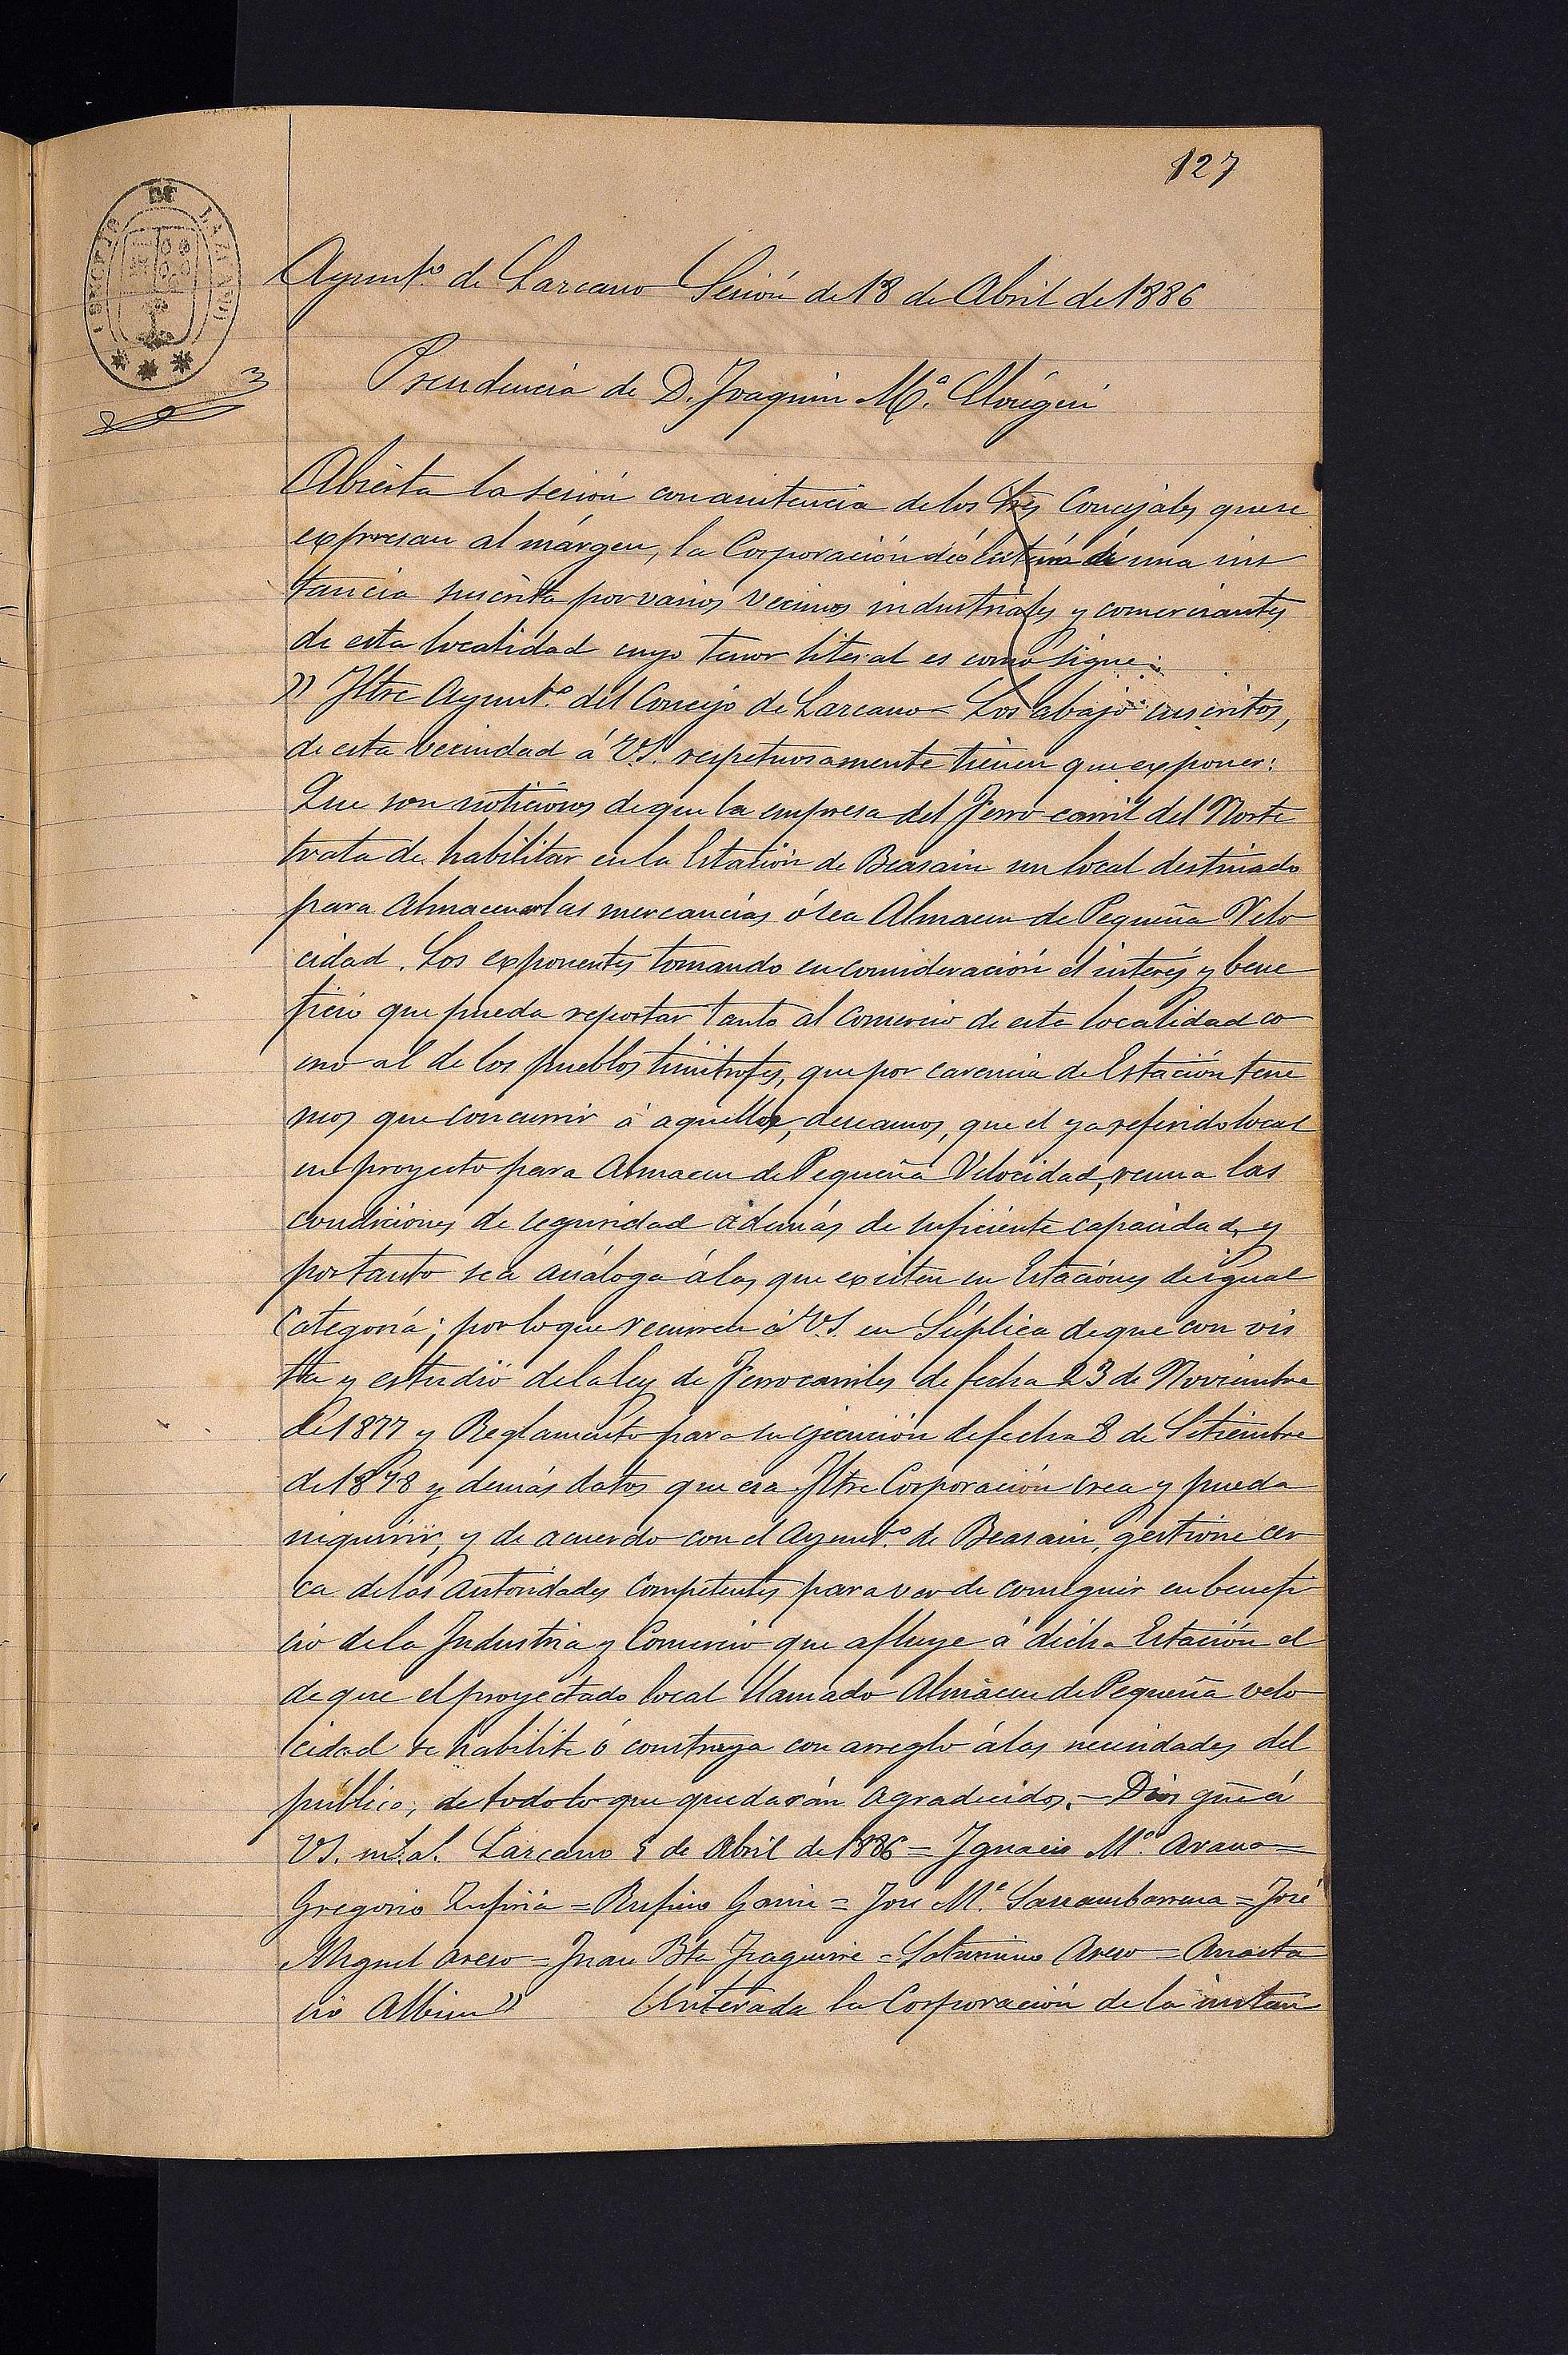 127
CONCEJO DE LAZCANO
Ayunt.º de Lazcano Sesión de 18 de Abril de 1886
Presidencia de D. Joaquin M.ª
Abierta la sesión con asistencia de los tres Concejales que se
expresan al márgen, la Corporación dió lectura de una ins
tancia suscrita por varios vecinos industriales y comerciantes
de esta localidad cuyo tenor literal es como sigue:
" Iltre Ayunt.º del Concejo de Lazcano = Los abajo suscritos,
de esta vecindad á V.S. respetuosamente tienen que exponer:
Que son noticiosos de que la empresa del Ferro-carril del Norte
trata de habilitar en la Estación de Beasain un local destinado
para almacenar las mercancias ó sea Almacen de Pequeña Velo
cidad. Los exponentes tomando en consideración el interés y bene
ficio que pueda reportar tanto al comercio de esta localidad co
mo al de los pueblos limitrofes, que por carencia de Estación tene
mos que concurrir á aquella, deseamos, que el ya referido local
en proyecto para Almacen de Pequeña Velocidad, reuna las
condiciones de seguridad además de suficiente capacidad, y
por tanto sea análoga á las que existen en Estaciones de igual
Categoría; por lo que recurren á V.S. en Súplica de que con vis
ta y estudio de la ley de Ferrocarriles de fecha 23 de Noviembre
de 1877 y Reglamento para su ejecución de fecha 8 de Setiembre
de 1878 y demás datos que esa Iltre Corporación crea y pueda
inquirir, y de acuerdo con el Ayunt.º de Beasain, gestione cer
ca de las autoridades competentes para ver de conseguir en benefi
cio de la Industria y Comercio que afluye á dicha Estación el
de que el proyectado local llamado Almacen de Pequeña velo
cidad se habilite ó construya con arreglo á las necesidades del
público, de todo lo que quedarán agradecidos. = Dios gũe á
V.S. m.s a.s Lazcano 5 de Abril de 1886 = Ignacio M.ª Arana =
Gregorio Zufiria = Rufino Garin = José M.ª = José
Miguel Areso = Juan Bta Izaguirre = Saturnino Areso = Anasta
sio Albisu" Enterada la Corporación de la instan